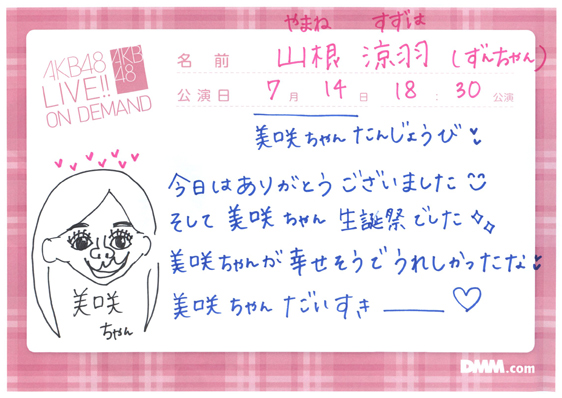 AKB48
LIVE!!
ON DEMAND
AKB
48
やまね すずは
名前 山根 涼羽 (ずんちゃん)
公演日 7月 14日 18:30公演
美咲ちゃん たんじょうび
今日はありがとうございました
そして 美咲ちゃん 生誕祭でした
美咲ちゃんが幸せそうでうれしかったな
美咲ちゃん だいすき ――
美咲
ちゃん
DMM.com